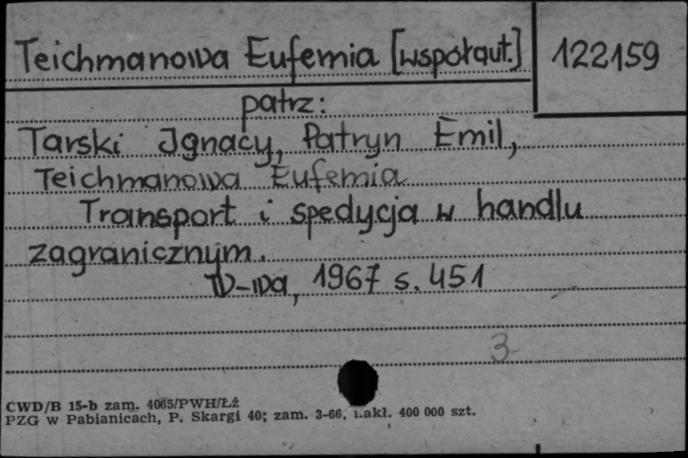 Teichmanowa Eufemia [współaut.] 122159
patrz:
Tarski Ignacy, Patryn Emil,
Teichmanowa Eufemia
Transport i spedycja w handlu
zagranicznym.
W-wa, 1967 s. 451
3
CWD/B 15-b zam. 4065/PWH/Łź
PZG w Pabianicach, P. Skargi 40; zam. 3-66, nakł. 400 000 szt.